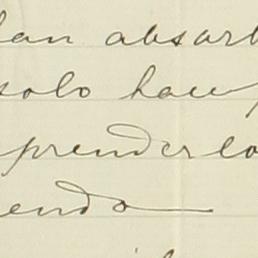 han absorb
solo hace
prenderlo
endo